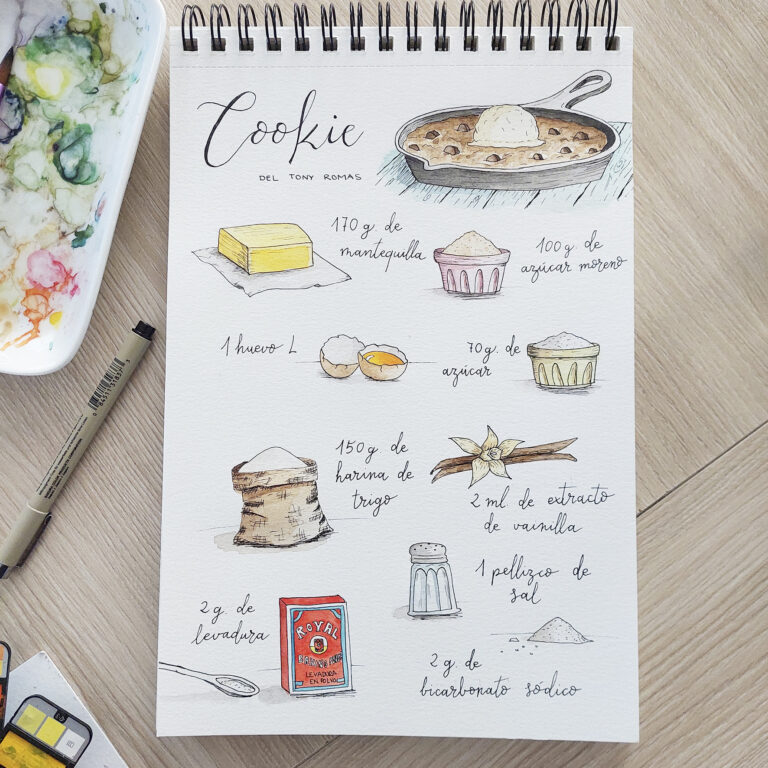 Cookie
DEL TONY ROMAS
170 g. de
mantequilla
100 g. de
azúcar moreno
1 huevo L
70 g. de
azúcar
150 g de
harina de
trigo
2 ml. de extracto
de vainilla
1 pellizco de
sal
2 g. de
levadura
ROYAL
LEVADURA
EN POLVO
2 g. de
bicarbonato sódico